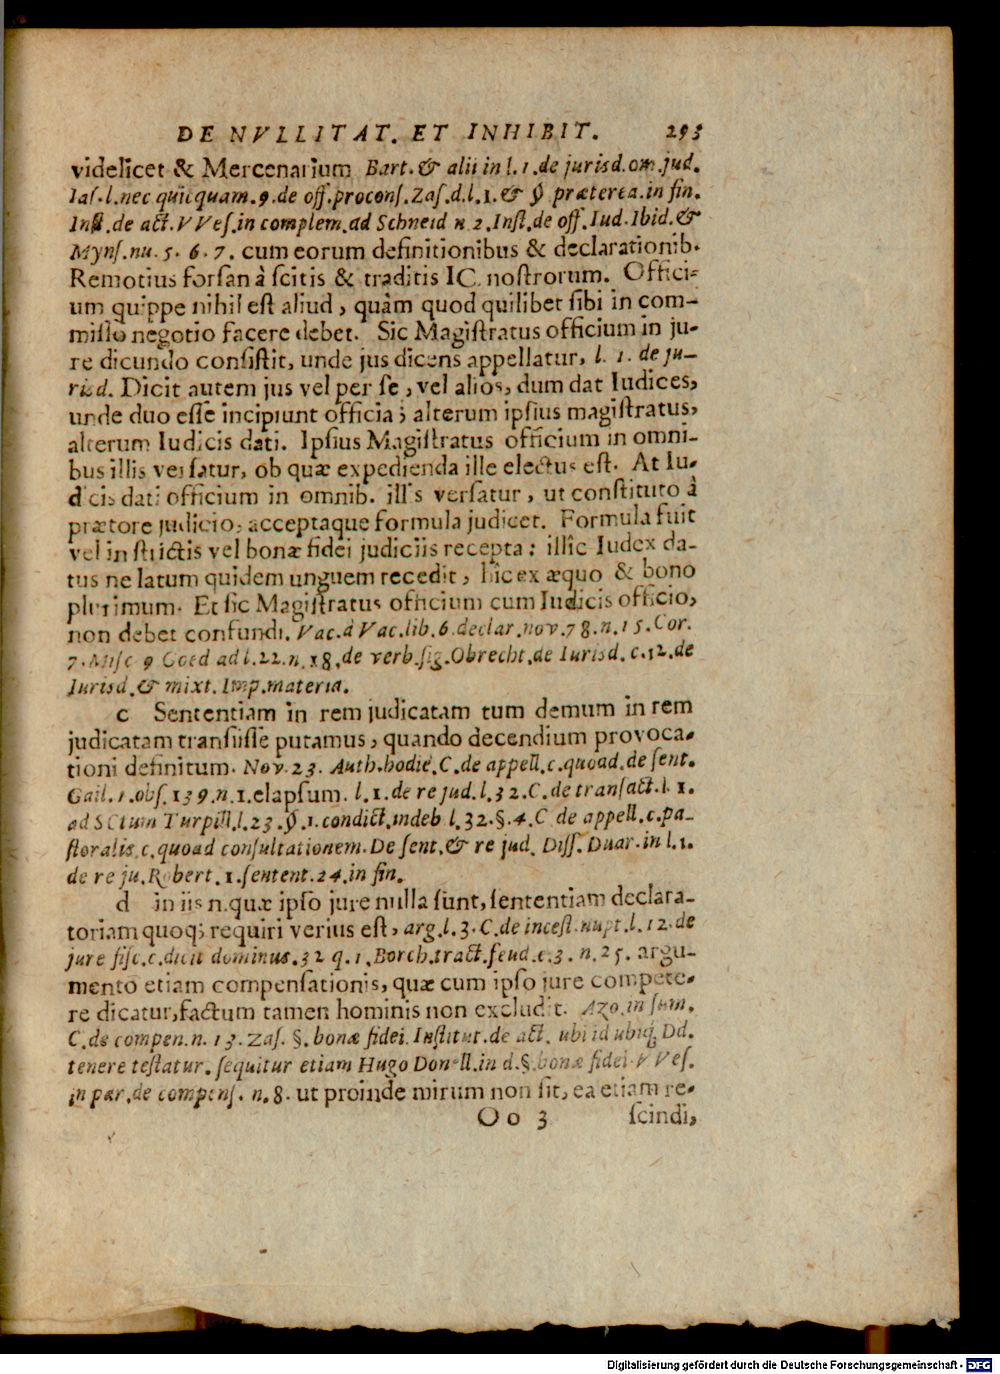 DE NVLLITAT. ET INHIBIT. 293
videlicet & Mercenarium Bart. & alii in l. 1. de jurisd. om. jud.
Ias. l. nec quicquam. 9. de off. procons. Zas. d. l. 1. & §. præterea. in fin.
Inst. de act. VVes. in complem. ad Schneid n 2. Inst. de off. Iud. Ibid. &
Myns. nu. 5. 6. 7. cum eorum definitionibus & declarationib.
Remotius forsan à scitis & traditis IC. nostrorum. Offici-
um quippe nihil est aliud, quàm quod quilibet sibi in com-
misso negotio facere debet. Sic Magistratus officium in ju-
re dicundo consistit, unde jus dicens appellatur, l. 1. de ju-
risd. Dicit autem jus vel per se, vel alios, dum dat Iudices,
unde duo esse incipiunt officia; alterum ipsius magistratus,
alterum Iudicis dati. Ipsius Magistratus officium in omni-
bus illis versatur, ob quæ expedienda ille electus est. At Iu-
dicis dati officium in omnib. illis versatur, ut constituto à
prætore judicio, acceptaque formula judicet. Formula fuit
vel in strictis vel bonæ fidei judiciis recepta: illîc Iudex da-
tus ne latum quidem unguem recedit, hic ex æquo & bono
plurimum. Et sic Magistratus officium cum Iudicis officio,
non debet confundi. Vac. à Vac. lib. 6. declar. nov. 78. n. 15. Cor.
7. Misc 9 Goed ad l. 22. n. 18. de verb. sig. Obrecht. de Iurisd. c. 12. de
Iurisd. & mixt. Imp. materia.
c Sententiam in rem judicatam tum demum in rem
judicatam transiisse putamus, quando decendium provoca-
tioni definitum. Nov. 23. Auth. hodie. C. de appell. c. quoad. de sent.
Gail. 1. obs. 139. n. 1. elapsum. l. 1. de re jud. l. 32. C. de transact. l. 1.
ad SCtum Turpill. l. 23. §. 1. condict. indeb l. 32. §. 4. C de appell. c. pa-
storalis c. quoad consultationem. De sent. & re jud. Diss. Duar. in l. 1.
de re ju. Robert. 1. sentent. 24. in fin.
d in iis n. quæ ipso jure nulla sunt, sententiam declara-
toriam quoq; requiri verius est, arg. l. 3. C. de incest. nupt. l. 12. de
jure fisc. c. dicit dominus. 32 q. 1. Borch. tract. feud. c. 3. n. 25. argu-
mento etiam compensationis, quæ cum ipso jure compete-
re dicatur, factum tamen hominis non excludit. Azo. in sum.
C. de compen. n. 13. Zas. §. bonæ fidei. Institut. de act. ubi id ubiq; Dd.
tenere testatur. sequitur etiam Hugo Donell. in d. §. bonæ fidei VVes.
in par. de compens. n. 8. ut proinde mirum non sit, ea etiam re-
Oo 3 scindi,
Digitalisierung gefördert durch die Deutsche Forschungsgemeinschaft - DFG